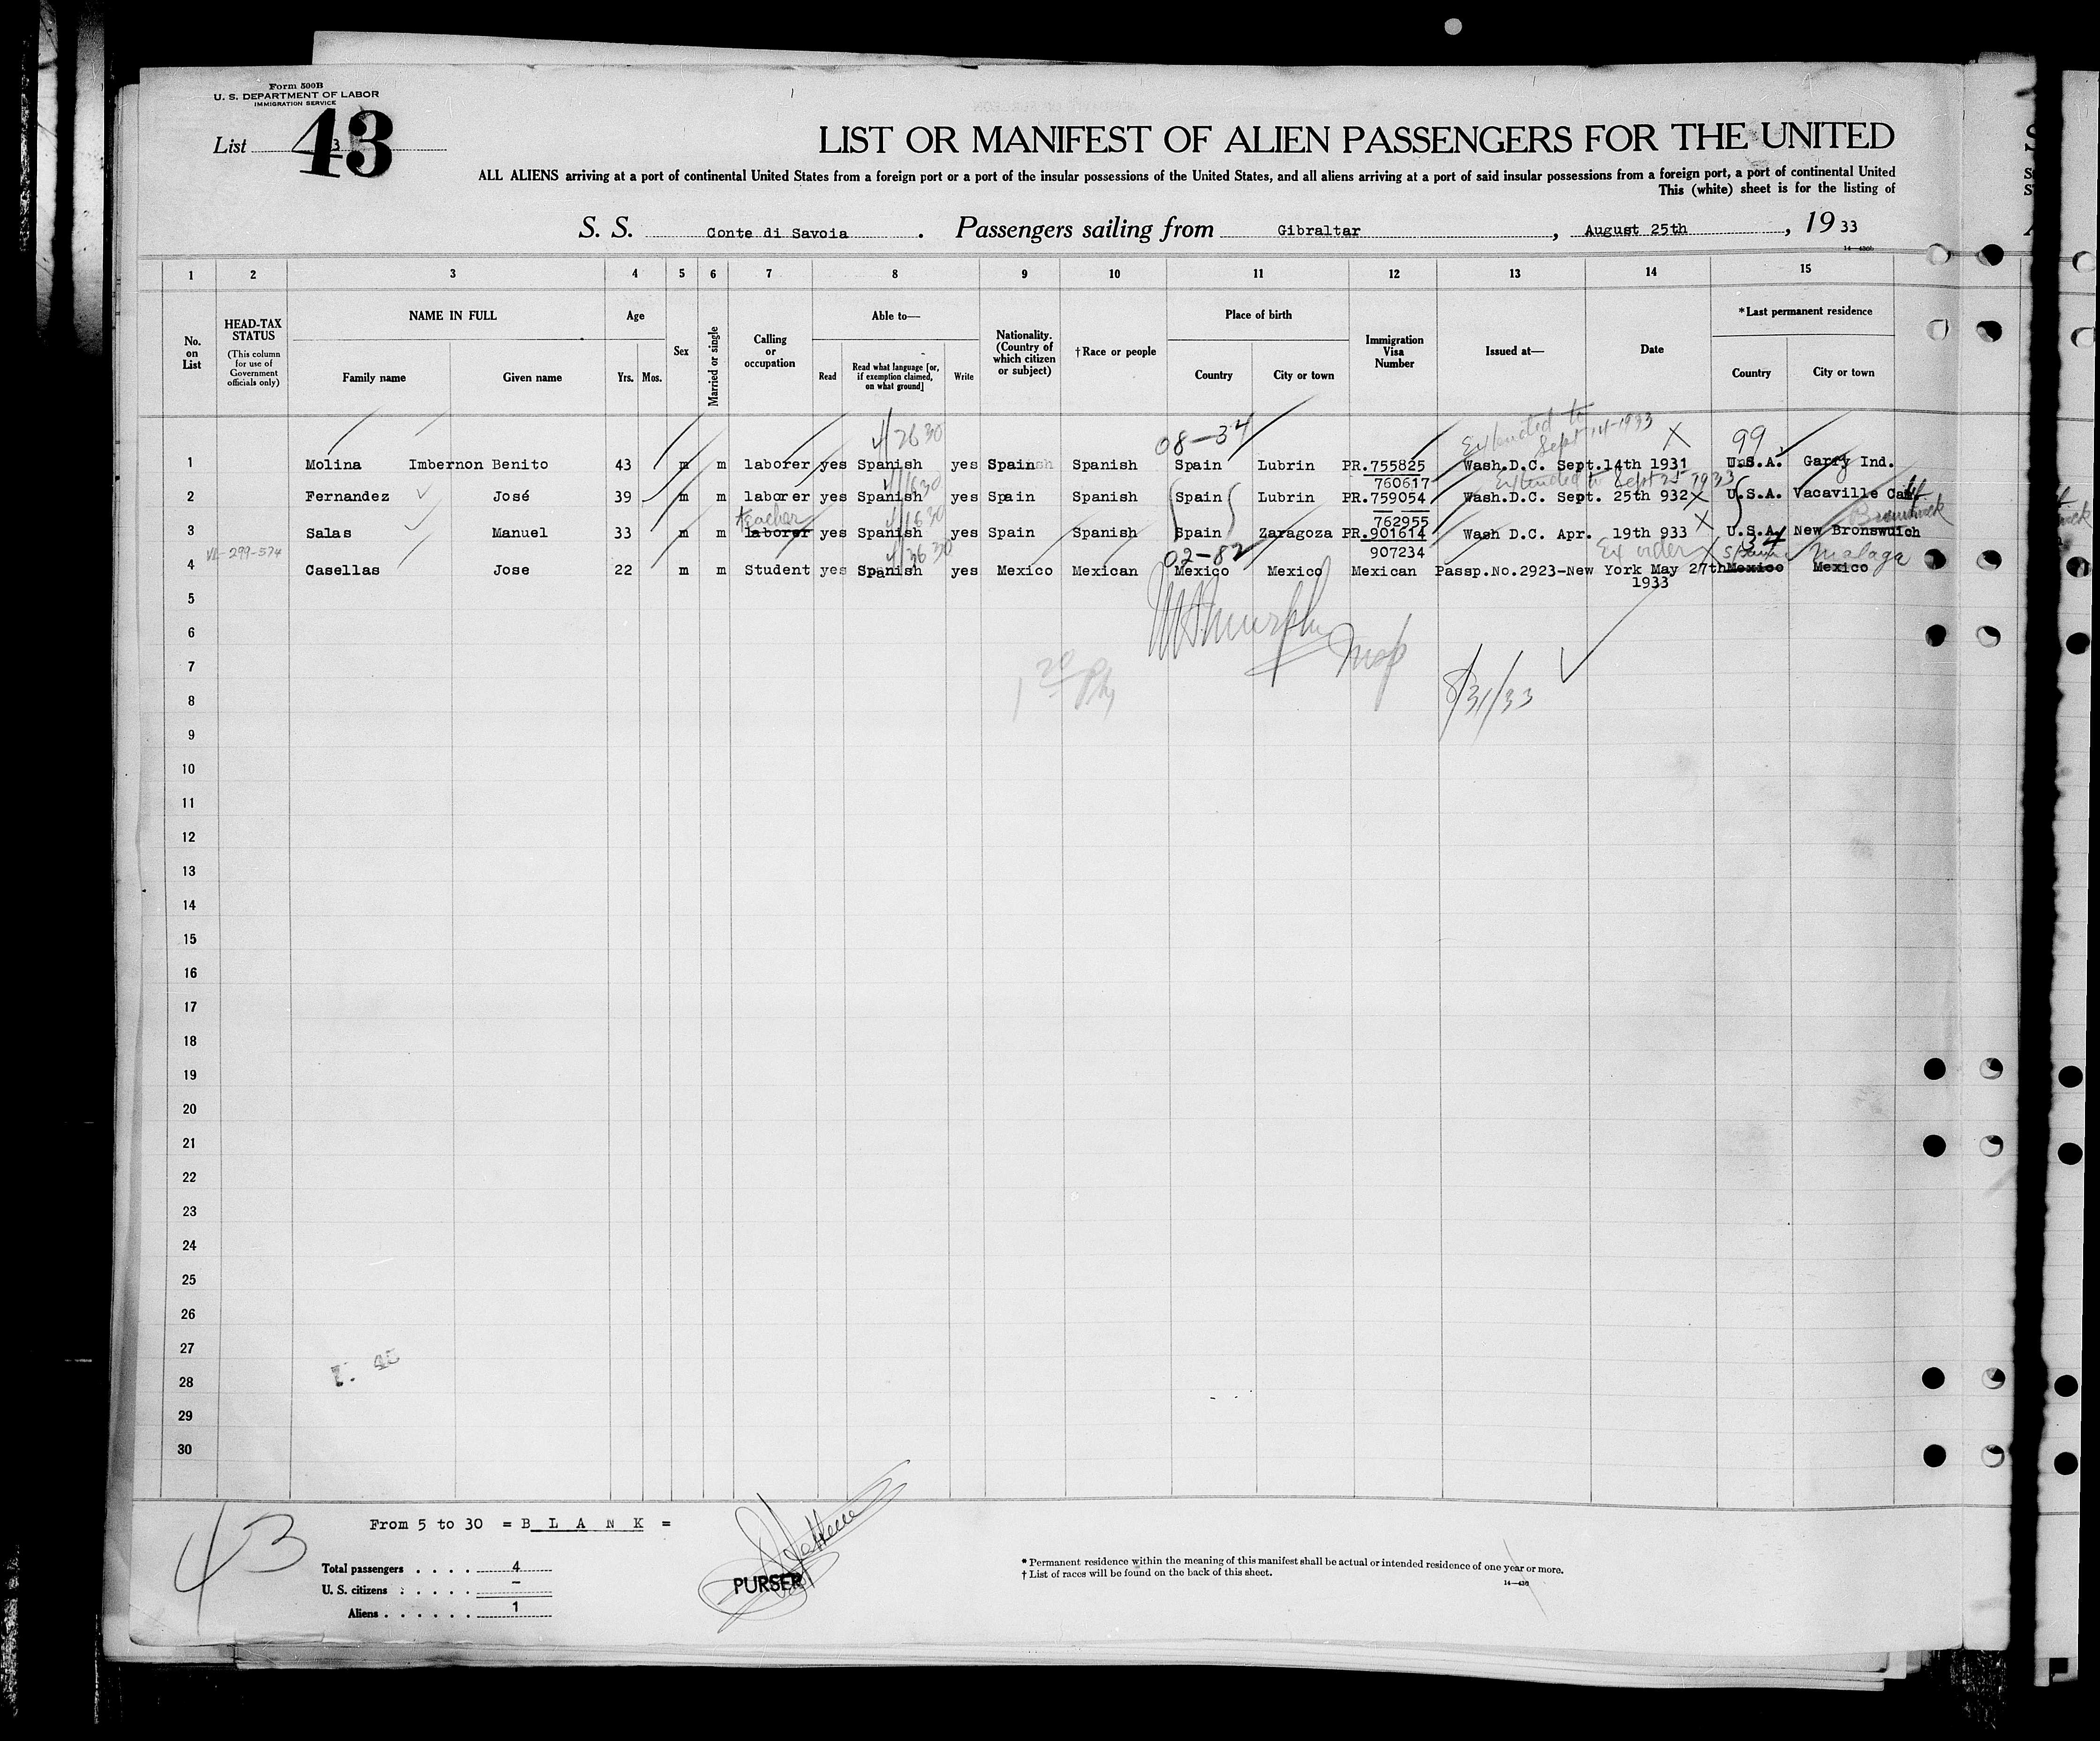 Form 500B
U. S. DEPARTMENT OF LABOR
IMMIGRATION SERVICE
List 3
43
LIST OR MANIFEST OF ALIEN PASSENGERS FOR THE UNITED
ALL ALIENS arriving at a port of continental United States from a foreign port or a port of the insular possessions of the United States, and all aliens arriving at a port of said insular possessions from a foreign port, a port of continental United
This (white) sheet is for the listing of
S. S. Conte di Savoia . Passengers sailing from Gibraltar , August 25th , 19 33
1 2 3 4 5 6 7 8 9 10 11 12 13 14 15
No. on List
HEAD-TAX STATUS
(This column for use of Government officials only)
NAME IN FULL
Family name Given name
Age
Yrs. Mos.
Sex
Married or single
Calling or occupation
Able to—
Read
Read what language [or, if exemption claimed, on what ground]
Write
Nationality. (Country of which citizen or subject)
†Race or people
Place of birth
Country City or town
Immigration Visa Number
Issued at—
Date
*Last permanent residence
Country City or town
4/2630 08-34 Extended to Sept 14-1933 X 99
1 Molina Imbernon Benito 43 m m laborer yes Spanish yes Spain Spanish Spain Lubrin PR.755825 Wash.D.C. Sept.14th 1931 U.S.A. Garry Ind.
760617 Extended to Sept 25 1933
2 Fernandez José 39 m m laborer yes Spanish yes Spain Spanish Spain Lubrin PR.759054 Wash.D.C. Sept. 25th 932 X U.S.A. Vacaville
teacher 762955 X Brunswick
3 Salas Manuel 33 m m laborer yes Spanish yes Spain Spanish Spain Zaragoza PR.901614 Wash D.C. Apr. 19th 933 U.S.A. New Bronswuich
299-574 4/2630 02-82 907234 X 34 Spain Malaga
4 Casellas Jose 22 m m Student yes Spanish yes Mexico Mexican Mexico Mexico Mexican Passp.No.2923-New York May 27th Mexico Mexico
1933
5
6
7
8
8/31/33
9
10
11
12
13
14
15
16
17
18
19
20
21
22
23
24
25
26
27
28
29
30
43
From 5 to 30 = B L A N K =
Total passengers . . . . 4
U. S. citizens . . . . . –
Aliens . . . . . . 1
PURSER
* Permanent residence within the meaning of this manifest shall be actual or intended residence of one year or more.
† List of races will be found on the back of this sheet.